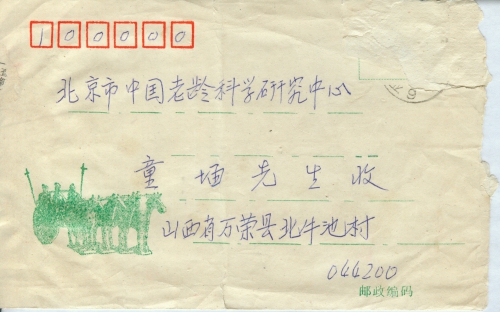 100000
北京市中国老龄科学研究中心
童 先生收
山西省万荣县北牛池村
044200
邮政编码